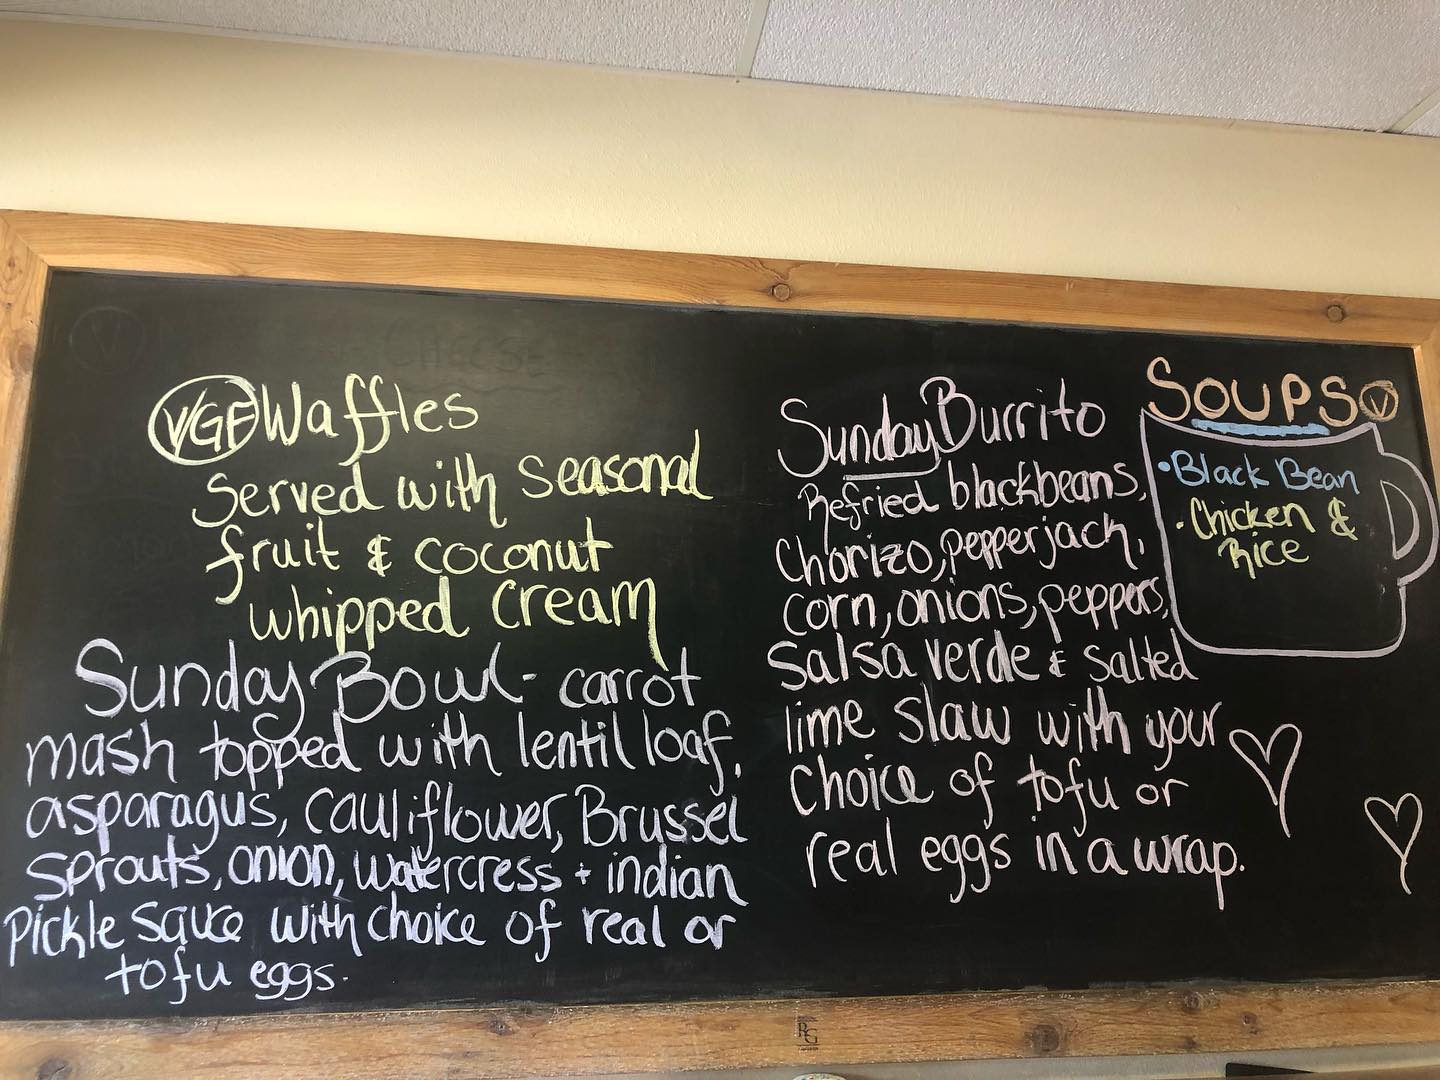 V/GF Waffles
Served with seasonal
fruit & coconut
whipped cream
Sunday Bowl - carrot
mash topped with lentil loaf,
asparagus, cauliflower, Brussel
sprouts, onion, watercress + indian
pickle sauce with choice of real or
tofu eggs.
Sunday Burrito
Refried blackbeans,
Chorizo, pepperjack,
corn, onions, peppers,
salsa verde & salted
lime slaw with your
choice of tofu or
real eggs in a wrap.
SOUPS V
• Black Bean
• Chicken &
Rice
V
CHEESE
RG